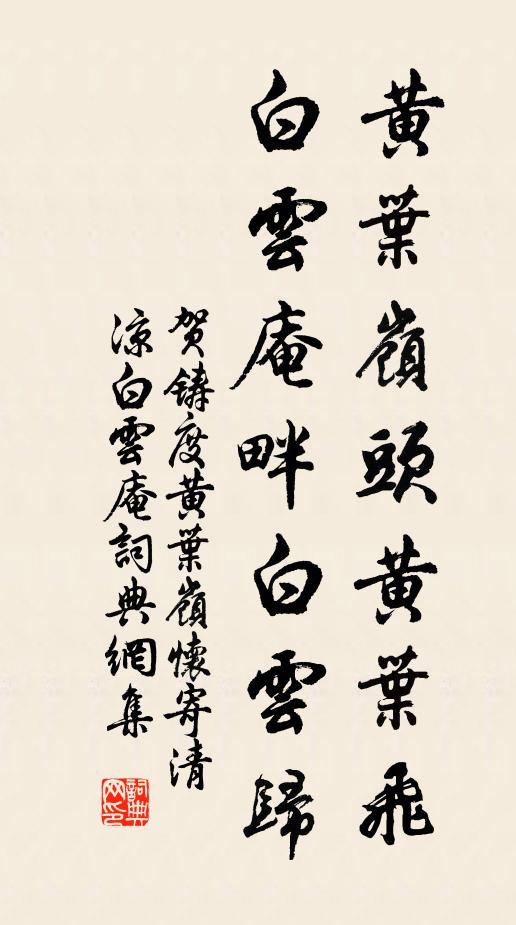 黃葉嶺頭黃葉飛
白雲庵畔白雲歸
贺鑄度黃葉嶺懷寄清
涼白雲庵詞典網集
詞典
网印